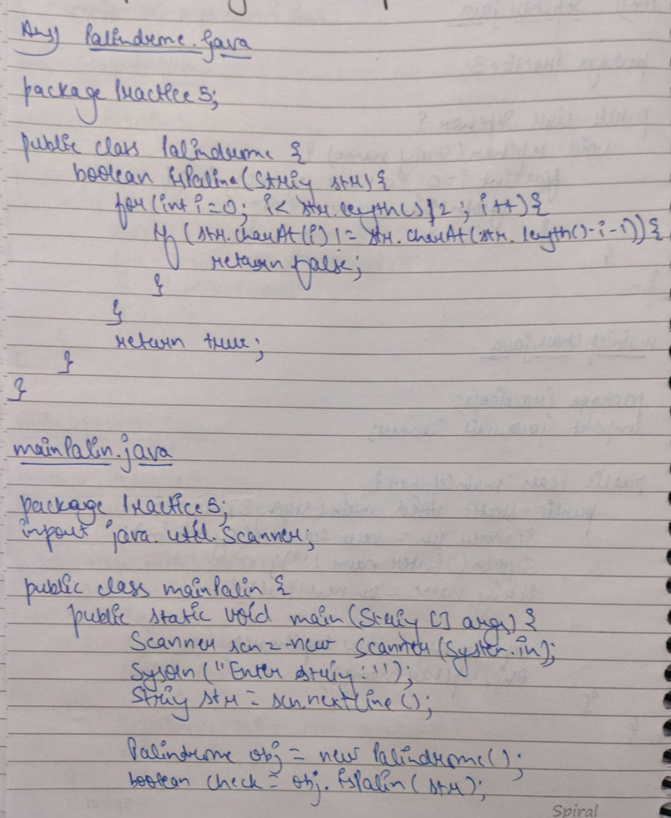 Ans) Palindrome.java
package Practice5;
public class Palindrome {
boolean isPaline(String str){
for(int i=0; i< str.length()/2; i++){
if (str.charAt(i) != str.charAt(str.length()-i-1)){
return false;
}
}
return true;
}
}
mainPalin.java
package Practice5;
import java.util.Scanner;
public class mainPalin {
public static void main(String [] args) {
Scanner scn = new Scanner(System.in);
Sysoln("Enter string:");
String str = scn.nextLine();
Palindrome obj = new Palindrome();
boolean check = obj.isPalin(str);
Spiral